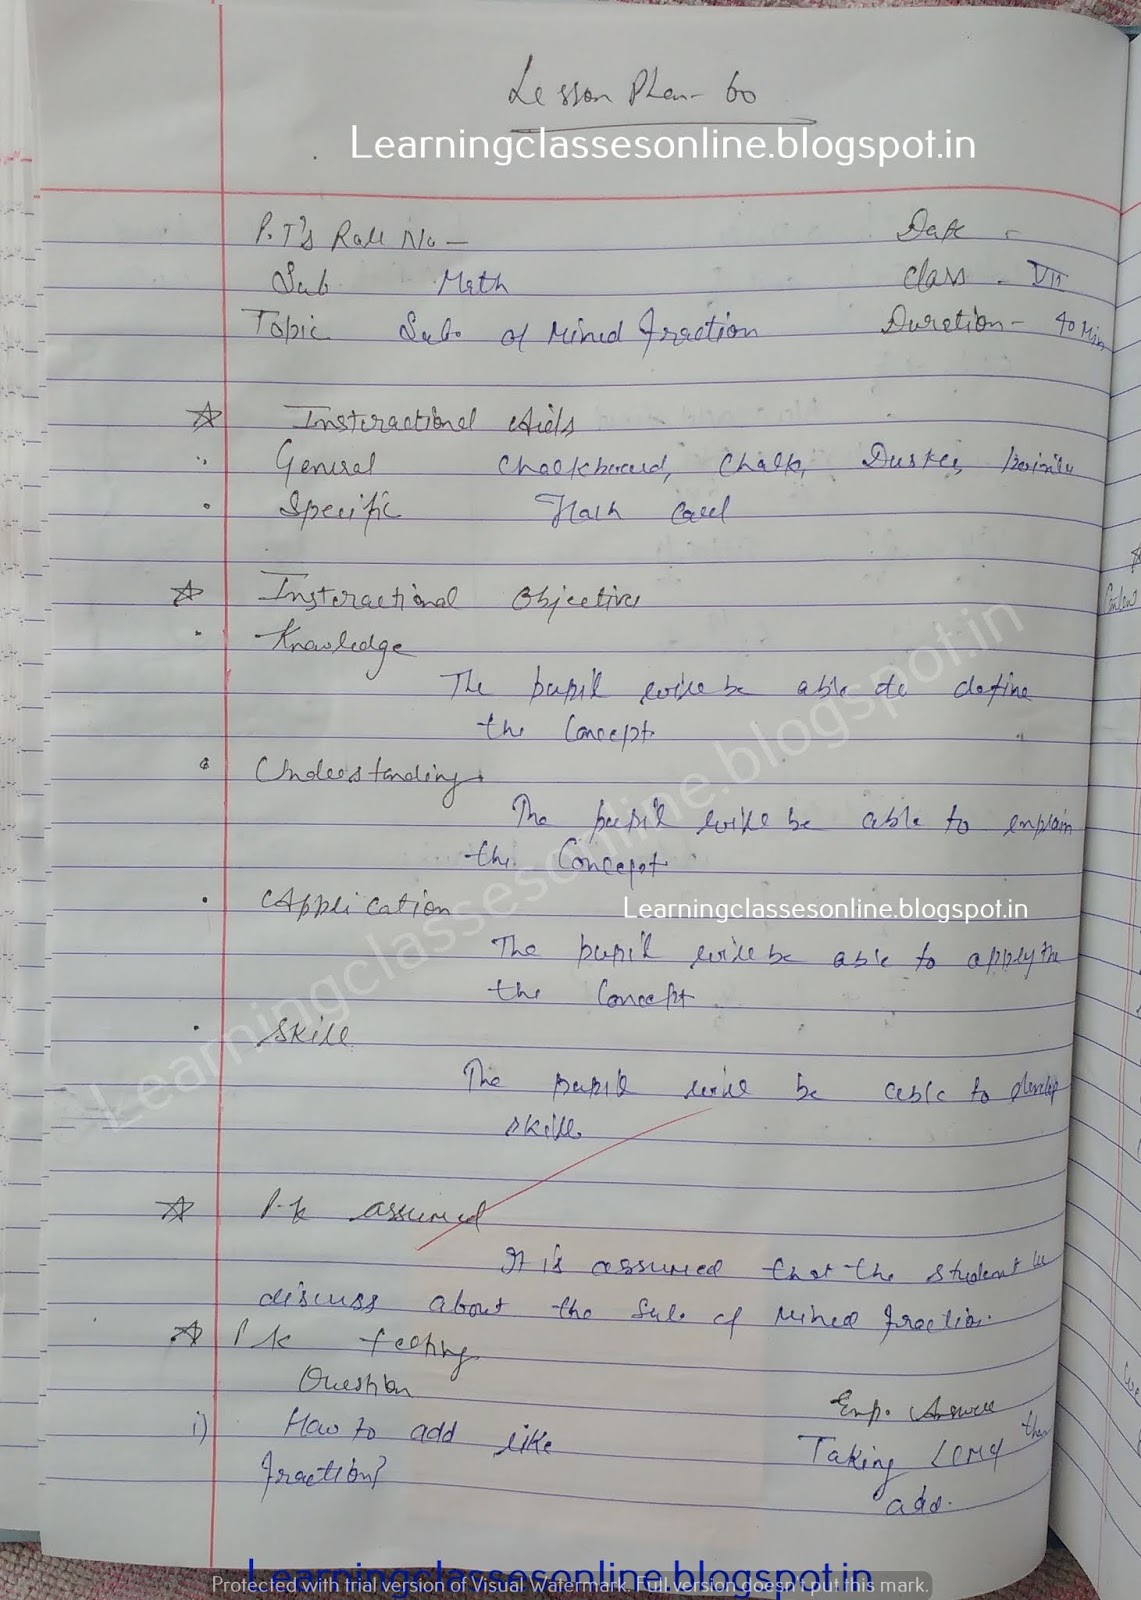 Lesson Plan- 60
Learningclassesonline.blogspot.in
P.T's Roll No - Date -
Sub Math Class - VII
Topic Sub. of Mixed fraction Duration - 40 Min
Instructional Aids
General Chalkboard, Chalk, Duster,
Specific Flash Card
Instructional Objectives
Knowledge
The pupil will be able to define
the Concept.
Understanding
The pupil will be able to explain
the Concept.
Application
Learningclassesonline.blogspot.in
The pupil will be able to apply the
the Concept.
Skill
The pupil will be able to develop
skill.
P.k assumed
It is assumed that the student
discuss about the Sub. of Mixed fraction.
P.k testing
Question Exp. Answer
i) How to add like Taking LCM then
fraction? add.
Learningclassesonline.blogspot.in
Learningclassesonline.blogspot.in
Protected with trial version of Visual Watermark. Full version doesn't put this mark.